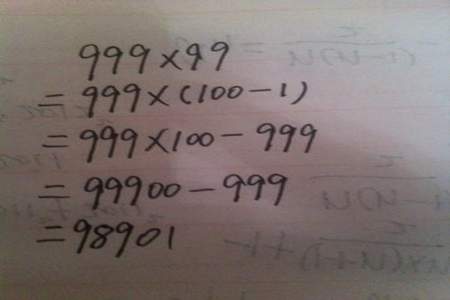 999×99
=999×(100-1)
=999×100-999
=99900-999
=98901